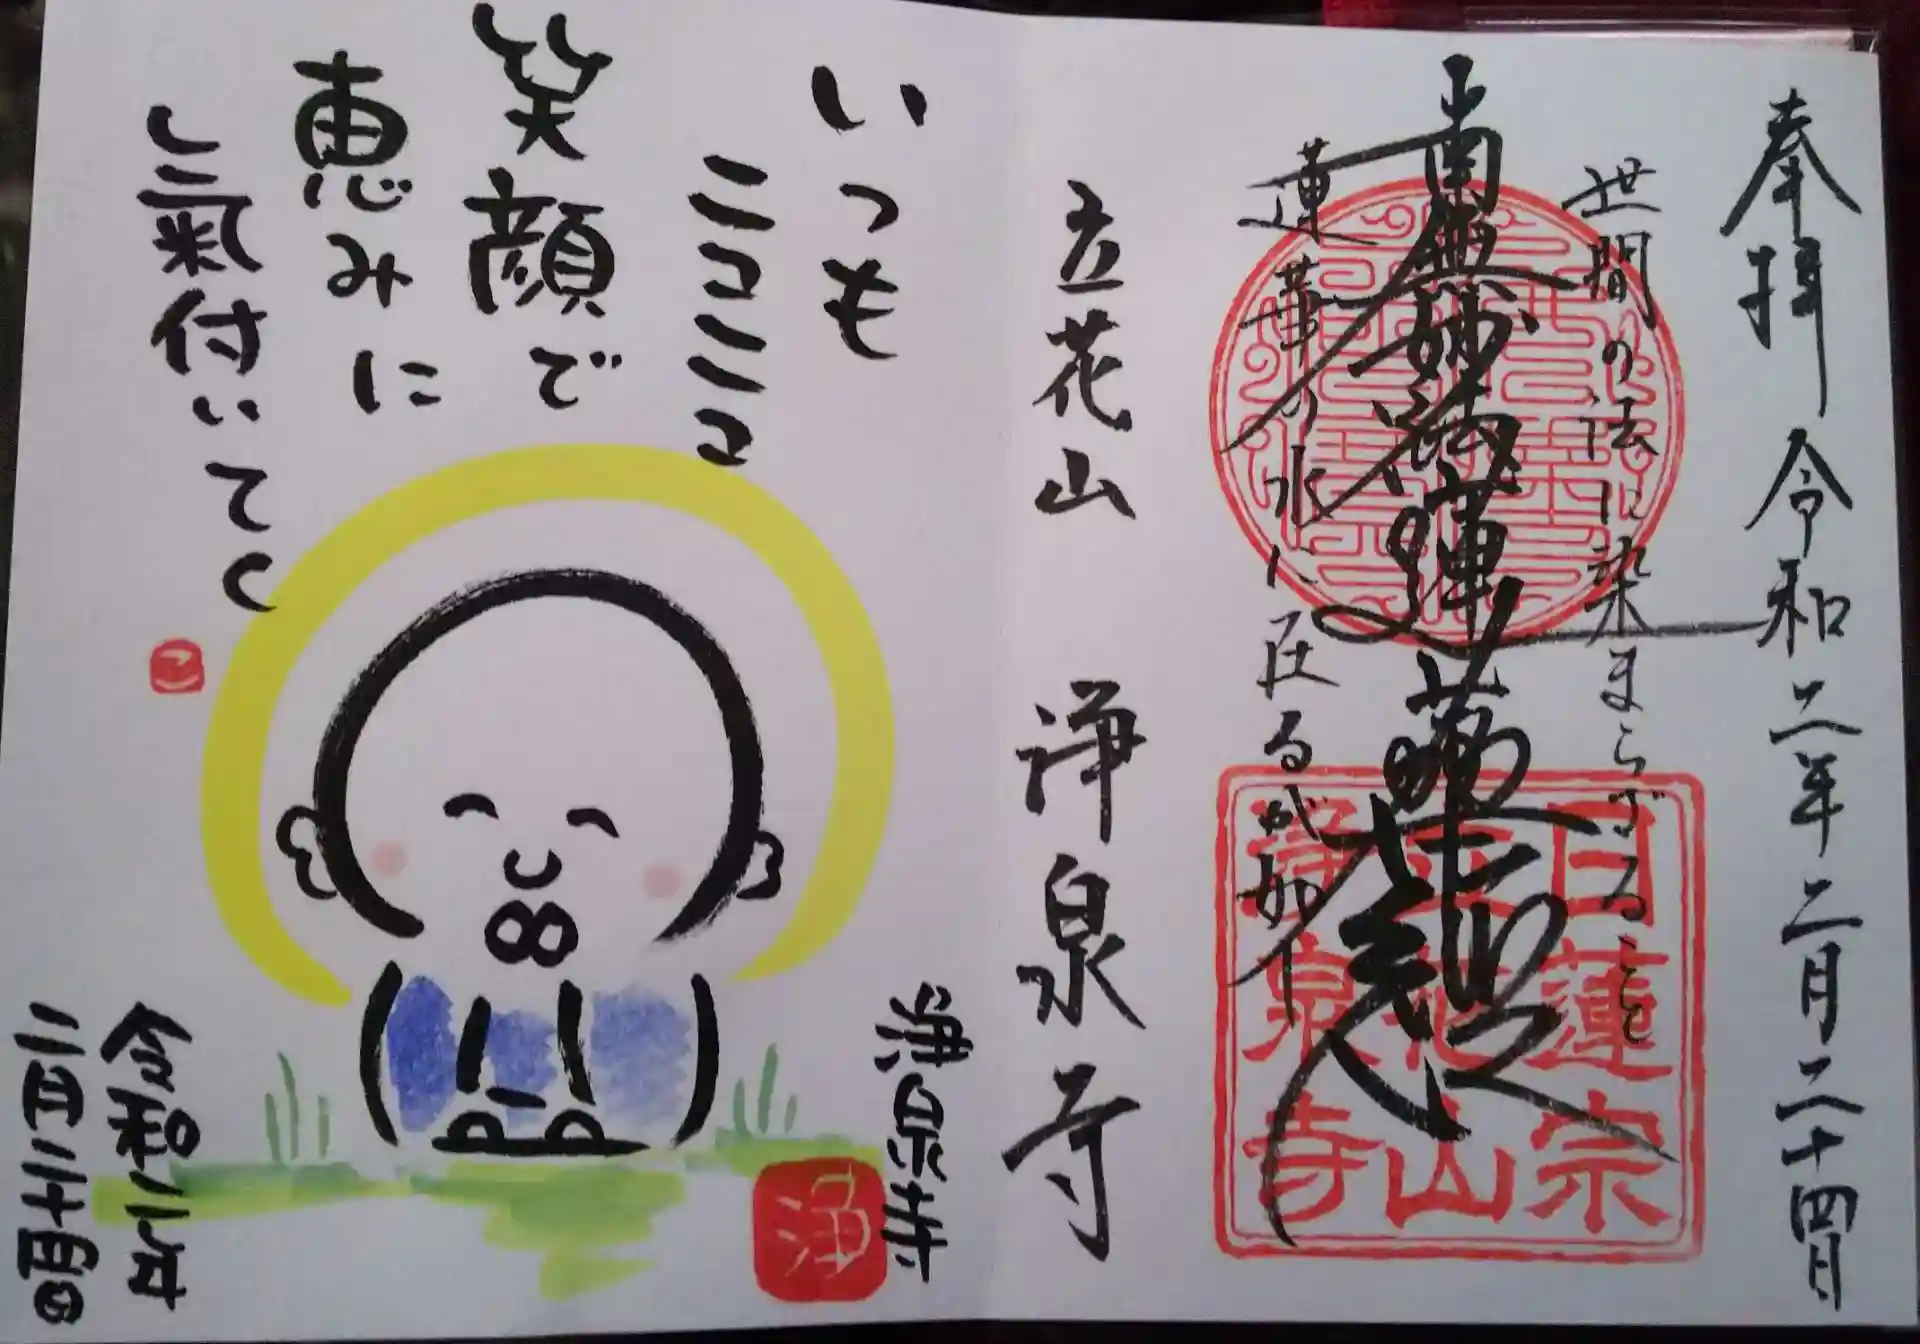 奉拝 令和二年二月二十四日
世間の法に染まらざること
南無妙法蓮華経
蓮華の水に在るが如し
日蓮宗
立花山
浄泉寺
立花山 浄泉寺
いつも
ニコニコ
笑顔で
恵みに
氣付いてく
浄泉寺
浄
令和二年
二月二十四日